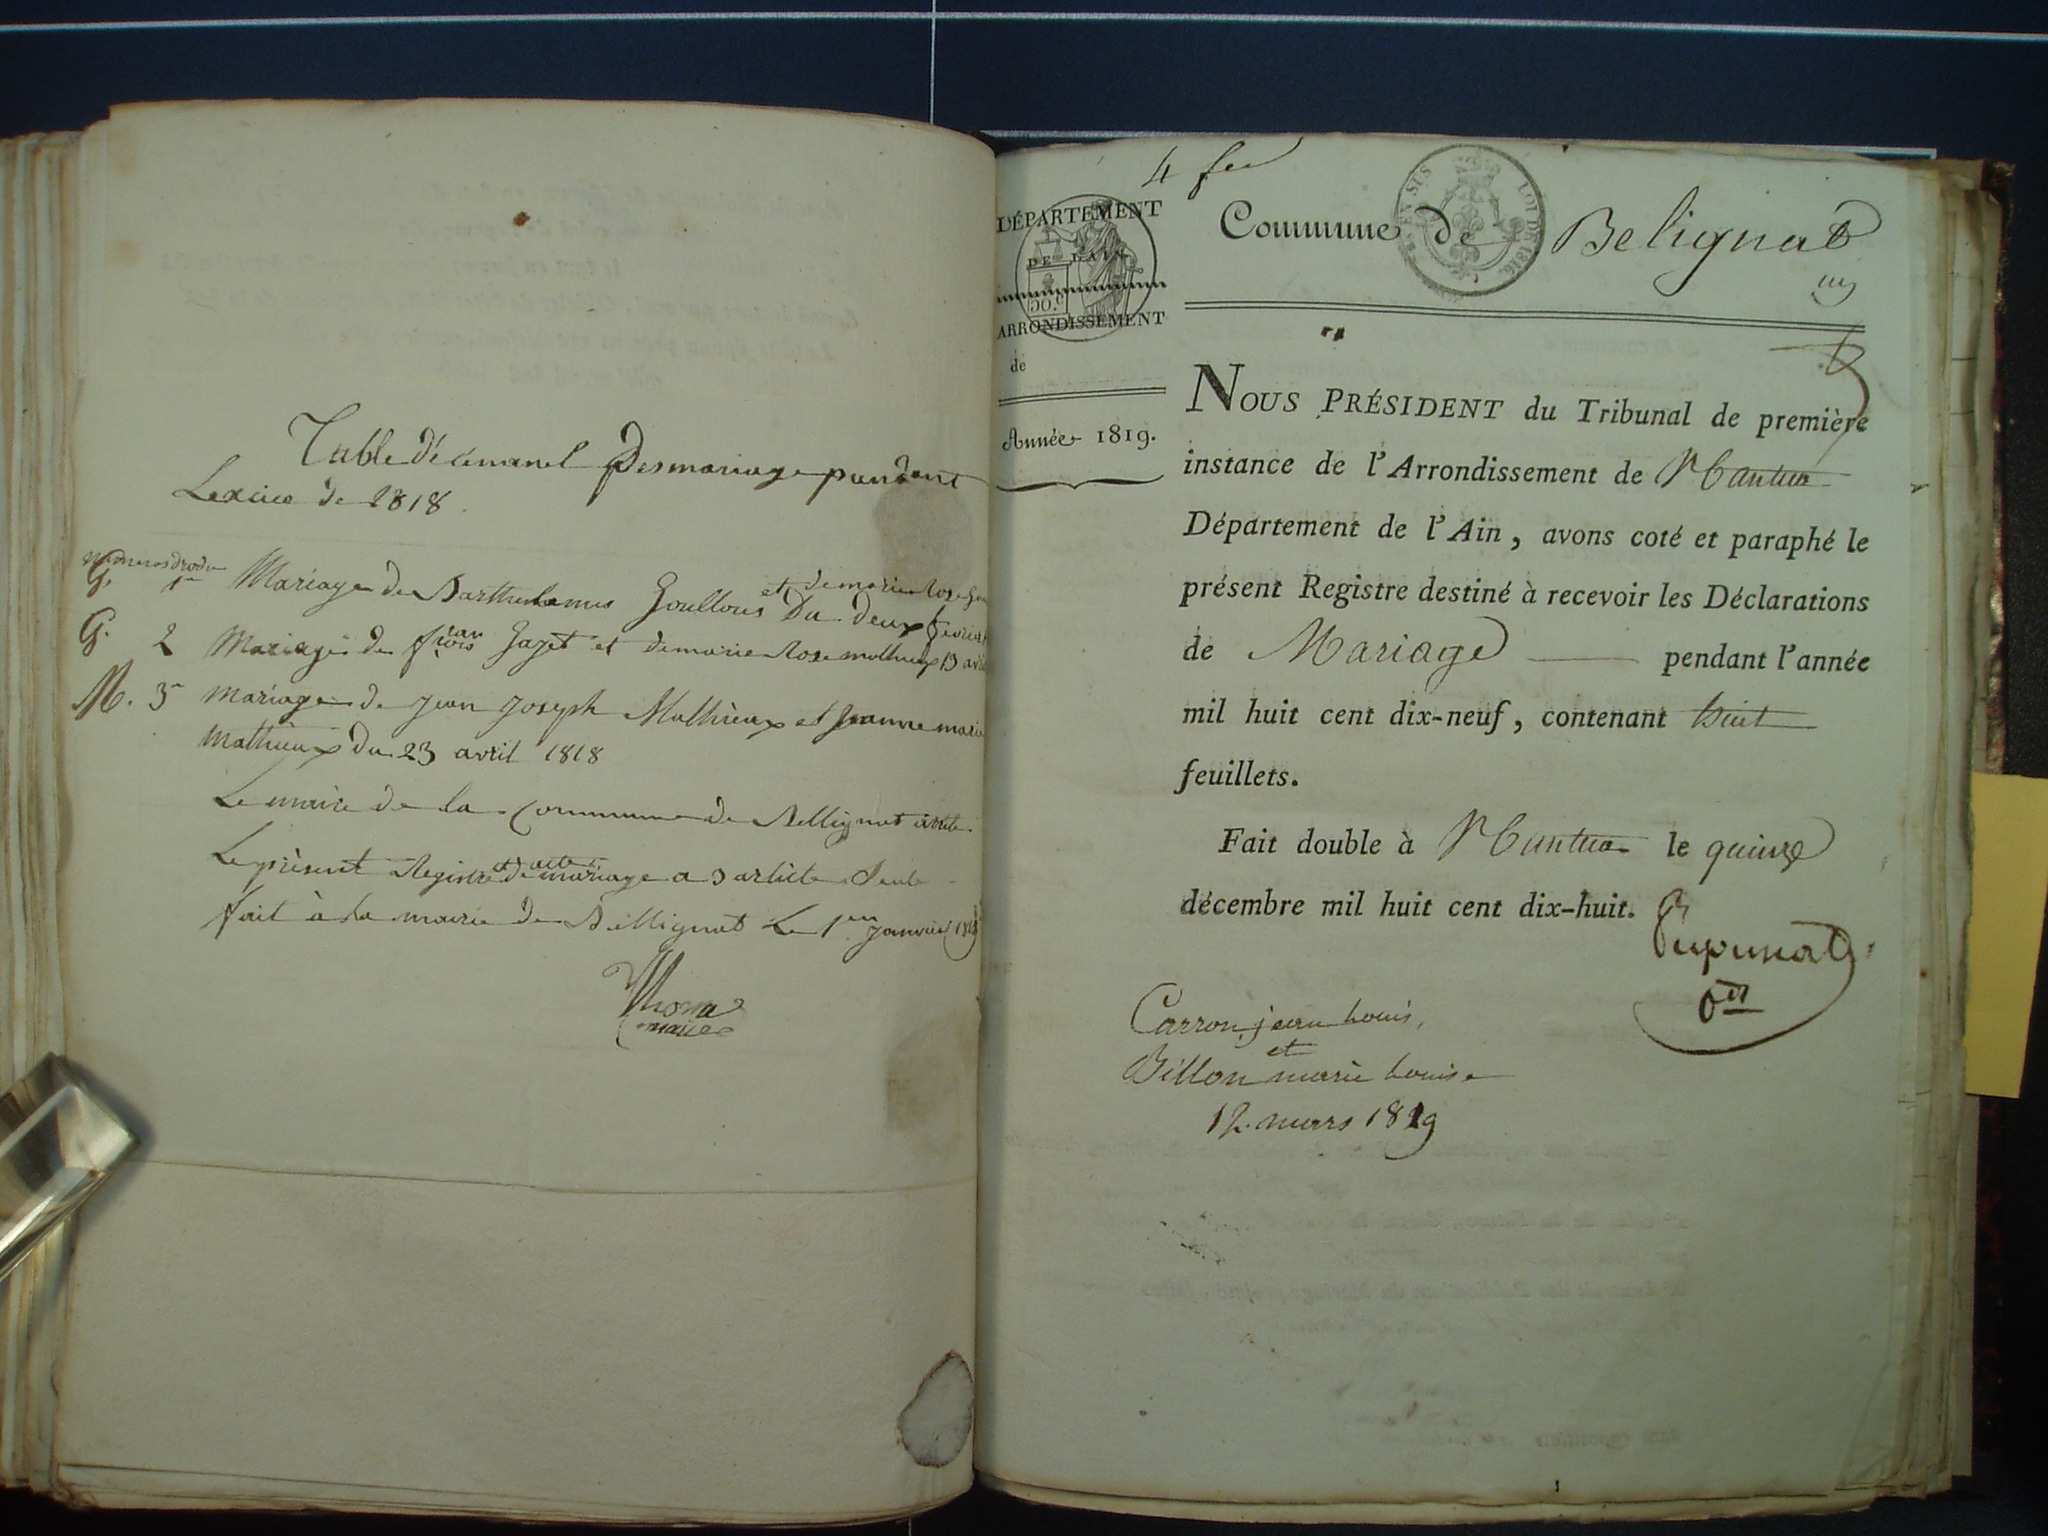 Table décimanel Des mariage pendant
Lexcice de 1818.
G. 1er Mariage de Barthelemis Goullous et de marie Rose
Du Deux fevrier
G. 2 Mariage de françois Gazet et de marie Rose mathieux 13 avril
M. 3e mariage de jean joseph Mathieux et jeanne marie
Mathieux du 23 avril 1818
Le maire de la commune de Bellignat arrete
Le présent Registre et de acte mariage a 3 article Seule
fait à la mairie de Bellignat Le 1er janvier
Thoma
maire
4 feu
DÉPARTEMENT
DE L'AIN
50.c
ARRONDISSEMENT
de
Année 1819.
LOI DE 1816.
Commune de Belignat
NOUS PRÉSIDENT du Tribunal de première
instance de l'Arrondissement de Nantua
Département de l'Ain, avons coté et paraphé le
présent Registre destiné à recevoir les Déclarations
de Mariage pendant l'année
mil huit cent dix-neuf, contenant huit
feuillets.
Fait double à Nantua le quinze
décembre mil huit cent dix-huit.
Carron jean Louis,
et
Billon marie Louise
12. mars 1819